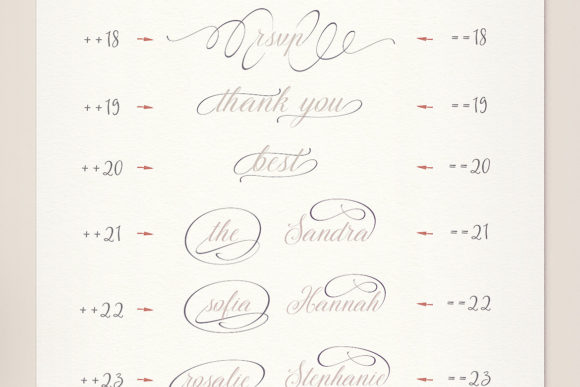 ++18 rsvp ==18
++19 thank you ==19
++20 best ==20
++21 the Sandra ==21
++22 sofia Hannah ==22
++23 rosalie Stephanie ==23